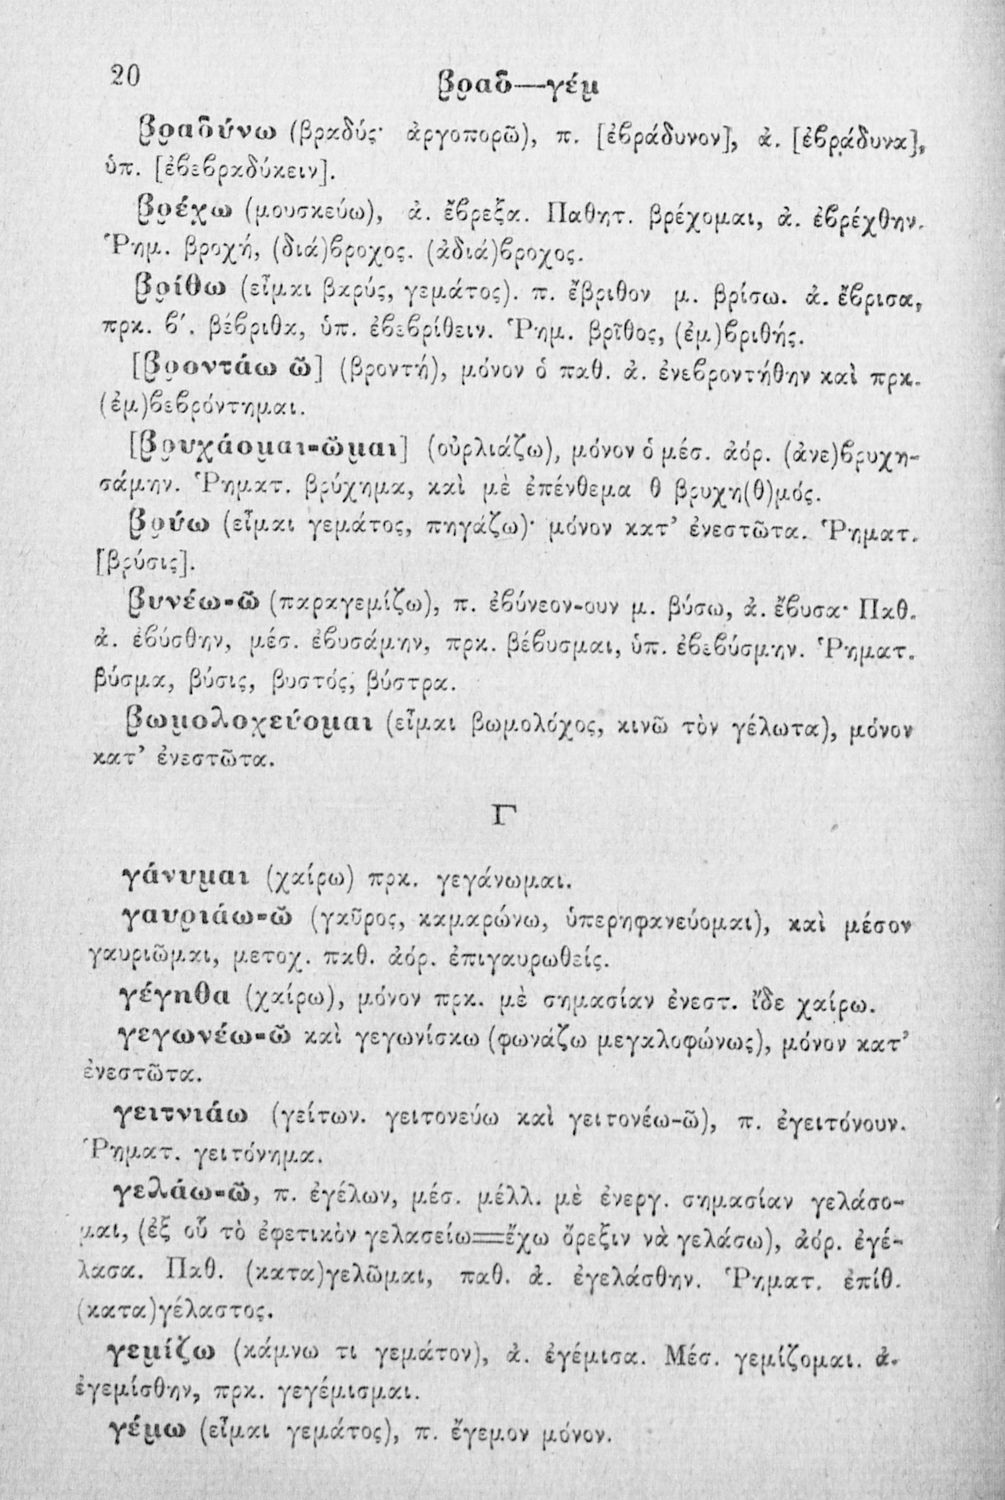 20
βραδ—γέμ
βραδύνω (βραδύς· ἀργοπορῶ), π. [ἐβράδυνον], ἀ. [ἐβράδυνα],
ὑπ. [ἐβεβραδύκειν].
βρέχω (μουσκεύω), ἀ. ἔβρεξα. Παθητ. βρέχομαι, ἀ. ἐβρέχθην.
Ῥημ. βροχή, (διά)βροχος. (ἀδιά)βροχος.
βρίθω (εἶμαι βαρύς, γεμάτος). π. ἔβριθον μ. βρίσω. ἀ. ἔβρισα,
πρκ. β΄. βέβριθα, ὑπ. ἐβεβρίθειν. Ῥημ. βρῖθος, (ἐμ)βριθής.
[βροντάω ῶ] (βροντή), μόνον ὁ παθ. ἀ. ἐνεβροντήθην καὶ πρκ.
(ἐμ)βεβρόντημαι.
[βρυχάομαι-ῶμαι] (οὐρλιάζω), μόνον ὁ μέσ. ἀόρ. (ἀνε)βρυχη-
σάμην. Ῥηματ. βρύχημα, καὶ μὲ ἐπένθεμα θ βρυχη(θ)μός.
βρύω (εἶμαι γεμάτος, πηγάζω)· μόνον κατ' ἐνεστῶτα. Ῥηματ.
[βρύσις].
βυνέω-ῶ (παραγεμίζω), π. ἐβύνεον-ουν μ. βύσω, ἀ. ἔβυσα· Παθ.
ἀ. ἐβύσθην, μέσ. ἐβυσάμην, πρκ. βέβυσμαι, ὑπ. ἐβεβύσμην. Ῥηματ.
βύσμα, βύσις, βυστός, βύστρα.
βωμολοχεύομαι (εἶμαι βωμολόχος, κινῶ τὸν γέλωτα), μόνον
κατ' ἐνεστῶτα.
Γ
γάνυμαι (χαίρω) πρκ. γεγάνωμαι.
γαυριάω-ῶ (γαῦρος, καμαρώνω, ὑπερηφανεύομαι), καὶ μέσον
γαυριῶμαι, μετοχ. παθ. ἀόρ. ἐπιγαυρωθείς.
γέγηθα (χαίρω), μόνον πρκ. μὲ σημασίαν ἐνεστ. ἴδε χαίρω.
γεγωνέω-ῶ καὶ γεγωνίσκω (φωνάζω μεγαλοφώνως), μόνον κατ'
ἐνεστῶτα.
γειτνιάω (γείτων. γειτονεύω καὶ γειτονέω-ῶ), π. ἐγειτόνουν.
Ῥηματ. γειτόνημα.
γελάω-ῶ, π. ἐγέλων, μέσ. μέλλ. μὲ ἐνεργ. σημασίαν γελάσο-
μαι, (ἐξ οὗ τὸ ἐφετικὸν γελασείω=ἔχω ὄρεξιν νὰ γελάσω), ἀόρ. ἐγέ-
λασα. Παθ. (κατα)γελῶμαι, παθ. ἀ. ἐγελάσθην. Ῥηματ. ἐπίθ.
(κατα)γέλαστος.
γεμίζω (κάμνω τι γεμάτον), ἀ. ἐγέμισα. Μέσ. γεμίζομαι. ἀ.
ἐγεμίσθην, πρκ. γεγέμισμαι.
γέμω (εἶμαι γεμάτος), π. ἔγεμον μόνον.